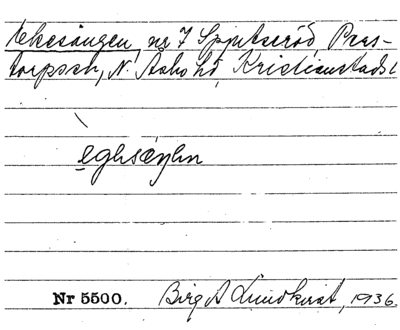 Ekesången, nr 7 Spjutseröd, Pers-
torps sn, N. Åsbo hd, Kristianstads l
eghsæŋen
Nr 5500. Birgit Lundkvist, 1936.